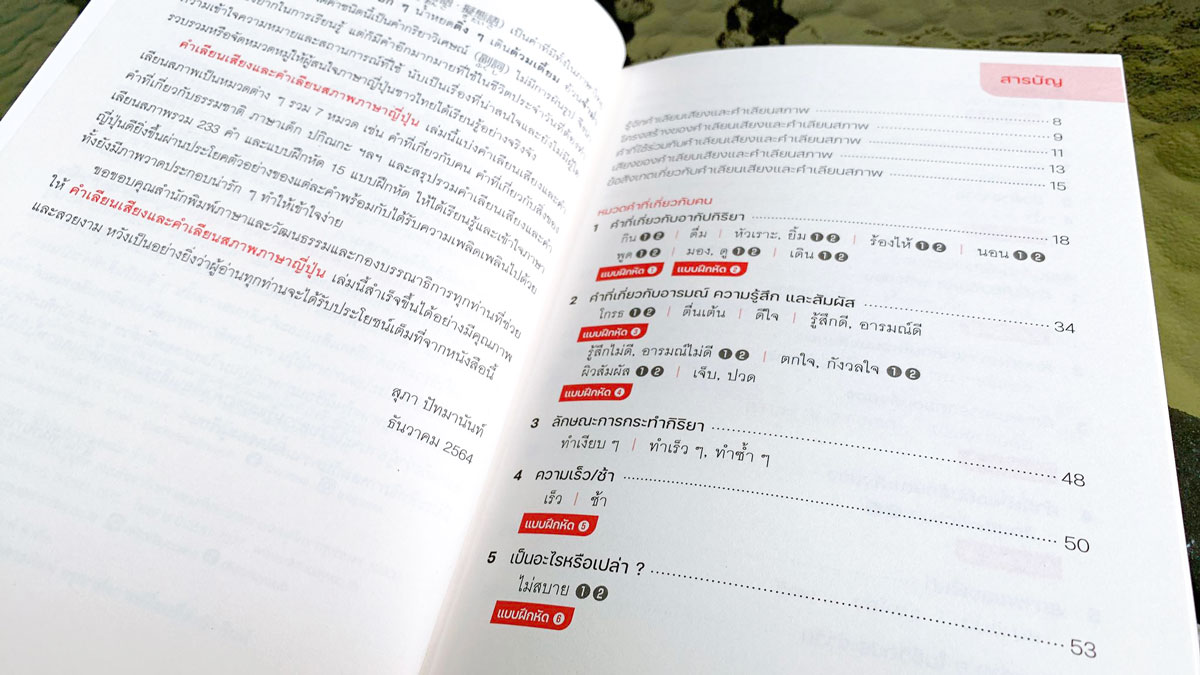 เป็นคำที่
ๆ น้ำหยดติ๋ง ๆ เดินต้วมเตี้ยม
คำชนิดนี้เป็นคำกริยาวิเศษณ์ (副詞) ไม่มีการผันรูป จึง
ยากในการเรียนรู้ แต่ก็มีคำอีกมากมายที่ใช้ในชีวิตประจำวันที่ต้อง
ความเข้าใจความหมายและสถานการณ์ที่ใช้ นับเป็นเรื่องที่น่าสนใจและยังไม่มีผู้ใด
รวบรวมหรือจัดหมวดหมู่ให้ผู้สนใจภาษาญี่ปุ่นชาวไทยได้เรียนรู้อย่างจริงจัง
คำเลียนเสียงและคำเลียนสภาพภาษาญี่ปุ่น เล่มนี้แบ่งคำเลียนเสียงและคำ
เลียนสภาพเป็นหมวดต่าง ๆ รวม 7 หมวด เช่น คำที่เกี่ยวกับคน คำที่เกี่ยวกับสิ่งของ
คำที่เกี่ยวกับธรรมชาติ ภาษาเด็ก ปกิณกะ ฯลฯ และสรุปรวมคำเลียนเสียงและคำ
เลียนสภาพรวม 233 คำ และแบบฝึกหัด 15 แบบฝึกหัด ให้ได้เรียนรู้และเข้าใจภาษา
ญี่ปุ่นดียิ่งขึ้นผ่านประโยคตัวอย่างของแต่ละคำพร้อมกับได้รับความเพลิดเพลินไปด้วย
ทั้งยังมีภาพวาดประกอบน่ารัก ๆ ทำให้เข้าใจง่าย
ขอขอบคุณสำนักพิมพ์ภาษาและวัฒนธรรมและกองบรรณาธิการทุกท่านที่ช่วย
ให้ คำเลียนเสียงและคำเลียนสภาพภาษาญี่ปุ่น เล่มนี้สำเร็จขึ้นได้อย่างมีคุณภาพ
และสวยงาม หวังเป็นอย่างยิ่งว่าผู้อ่านทุกท่านจะได้รับประโยชน์เต็มที่จากหนังสือนี้
สุภา ปัทมานันท์
ธันวาคม 2564
สารบัญ
รู้จักคำเลียนเสียงและคำเลียนสภาพ 8
โครงสร้างของคำเลียนเสียงและคำเลียนสภาพ 9
คำที่ใช้ร่วมกับคำเลียนเสียงและคำเลียนสภาพ 11
เสียงของคำเลียนเสียงและคำเลียนสภาพ 13
ข้อสังเกตเกี่ยวกับคำเลียนเสียงและคำเลียนสภาพ 15
หมวดคำที่เกี่ยวกับคน
1 คำที่เกี่ยวกับอากัปกิริยา 18
กิน ❶❷ | ดื่ม | หัวเราะ, ยิ้ม ❶❷ | ร้องไห้ ❶❷ | นอน ❶❷
พูด ❶❷ | มอง, ดู ❶❷ | เดิน ❶❷
แบบฝึกหัด ❶ แบบฝึกหัด ❷
2 คำที่เกี่ยวกับอารมณ์ ความรู้สึก และสัมผัส 34
โกรธ ❶❷ | ตื่นเต้น | ดีใจ | รู้สึกดี, อารมณ์ดี
แบบฝึกหัด ❸
รู้สึกไม่ดี, อารมณ์ไม่ดี ❶❷ | ตกใจ, กังวลใจ ❶❷
ผิวสัมผัส ❶❷ | เจ็บ, ปวด
แบบฝึกหัด ❹
3 ลักษณะการกระทำกิริยา 48
ทำเงียบ ๆ | ทำเร็ว ๆ, ทำซ้ำ ๆ
4 ความเร็ว/ช้า 50
เร็ว | ช้า
แบบฝึกหัด ❺
5 เป็นอะไรหรือเปล่า ? 53
ไม่สบาย ❶❷
แบบฝึกหัด ❻